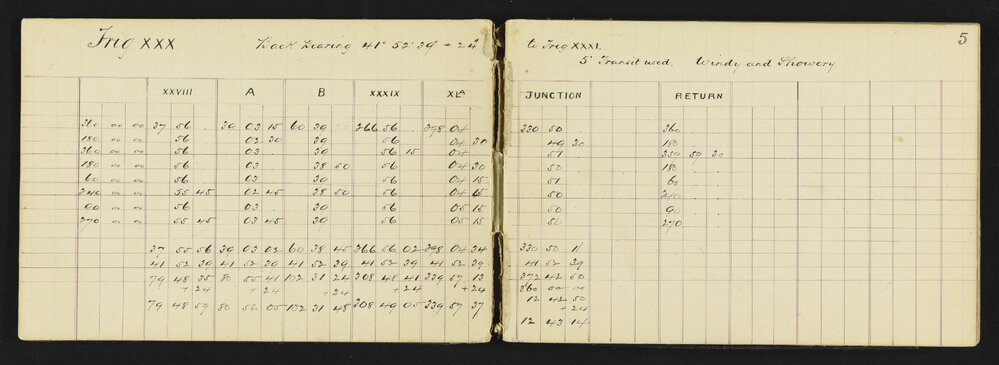 5
Trig XXX Back bearing 41° 52' 39" + 24" to Trig XXXI.
5" Transit used. Windy and Showery
XXVIII A B XXXIX XLA JUNCTION RETURN
360 00 00 37 56 . 39 03 15 60 39 . 266 56 . 298 04 . 330 50 . 360 . .
180 00 00 56 . 02 30 39 . 56 . 04 30 49 30 180 . .
360 00 00 56 . 03 . 39 . 56 15 04 . 51 . 359 59 30
180 00 00 56 . 03 . 38 50 56 . 04 30 50 . 180 . .
60 00 00 56 . 03 . 39 . 56 . 04 15 51 . 60 . .
240 00 00 55 45 02 45 38 50 56 . 04 15 50 . 240 . .
90 00 00 56 . 03 . 39 . 56 . 05 15 50 . 90 . .
270 00 00 55 45 03 45 39 . 56 . 05 15 50 . 270 . .
37 55 56 39 03 02 60 38 45 266 56 02 298 04 34 330 50 11
41 52 39 41 52 39 41 52 39 41 52 39 41 52 39 41 52 39
79 48 35 80 55 41 102 31 24 308 48 41 339 57 13 372 42 50
+24 +24 +24 +24 +24 360 00 00
12 42 50
+24
79 48 59 80 56 05 102 31 48 308 49 05 339 57 37 12 43 14